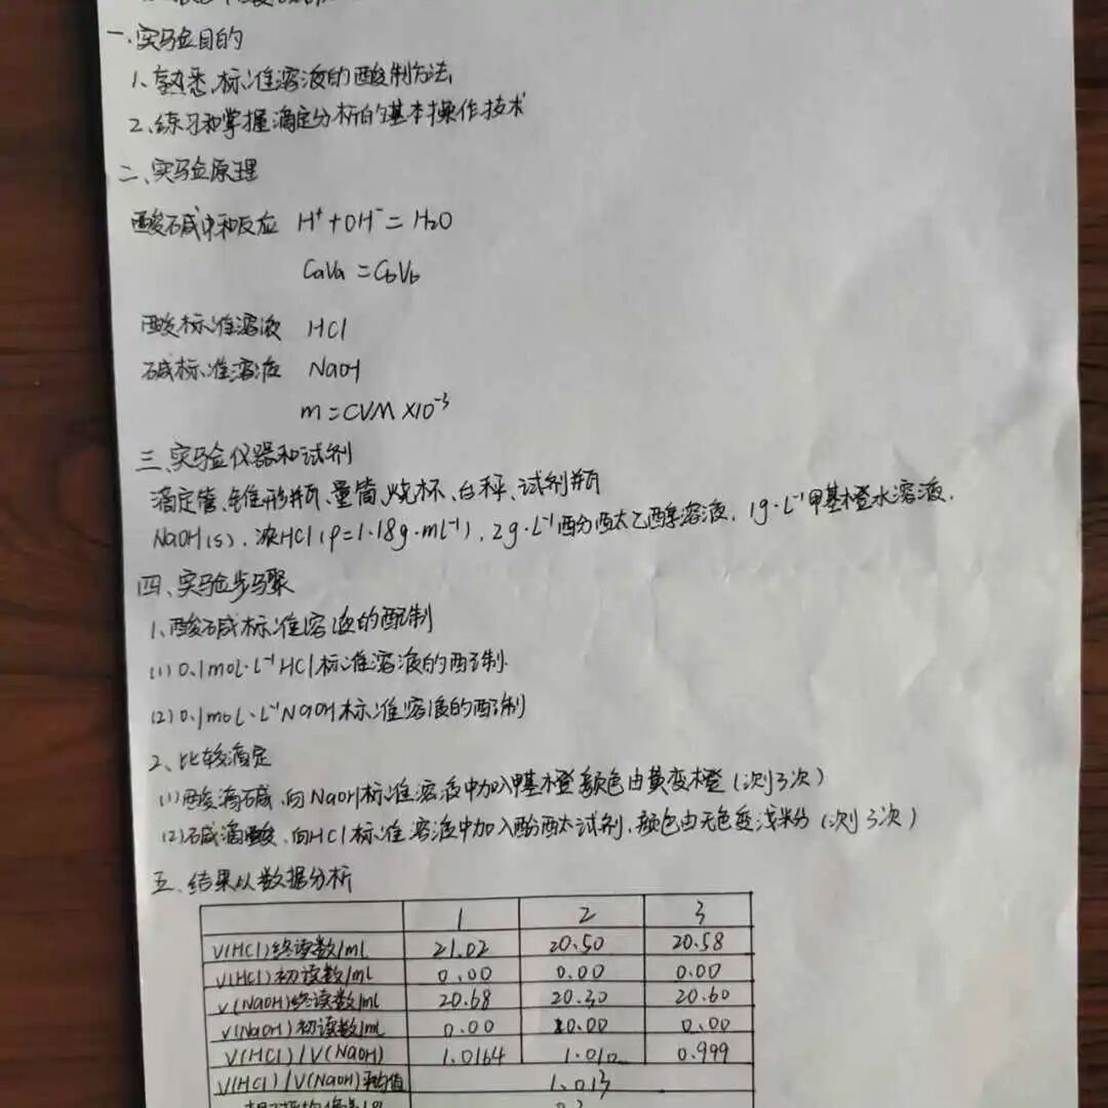 一.实验目的
1、熟悉标准溶液的酸制方法
2、练习和掌握滴定分析的基本操作技术
二、实验原理
酸碱中和反应 H⁺+OH⁻=H₂O
CaVa=CbVb
酸标准溶液 HCl
碱标准溶液 NaOH
m=CVM×10⁻³
三、实验仪器和试剂
滴定管、锥形瓶、量筒、烧杯、台秤、试剂瓶
NaOH(s),浓HCl(ρ=1.18g·ml⁻¹),2g·L⁻¹酚酞乙醇溶液,1g·L⁻¹甲基橙水溶液.
四、实验步骤
1、酸碱标准溶液的配制
(1)0.1mol·L⁻¹HCl标准溶液的配制.
(2)0.1mol·L⁻¹NaOH标准溶液的配制
2、比较滴定
(1)酸滴碱,向NaOH标准溶液中加入甲基橙,颜色由黄变橙(测3次)
(2)碱滴酸,向HCl标准溶液中加入酚酞试剂,颜色由无色变浅粉(测3次)
五、结果以数据分析
1 2 3
V(HCl)终读数/ml 21.02 20.50 20.58
V(HCl)初读数/ml 0.00 0.00 0.00
V(NaOH)终读数/ml 20.68 20.30 20.60
V(NaOH)初读数/ml 0.00 0.00 0.00
V(HCl)/V(NaOH) 1.0164 1.010 0.999
V(HCl)/V(NaOH)平均值 1.013